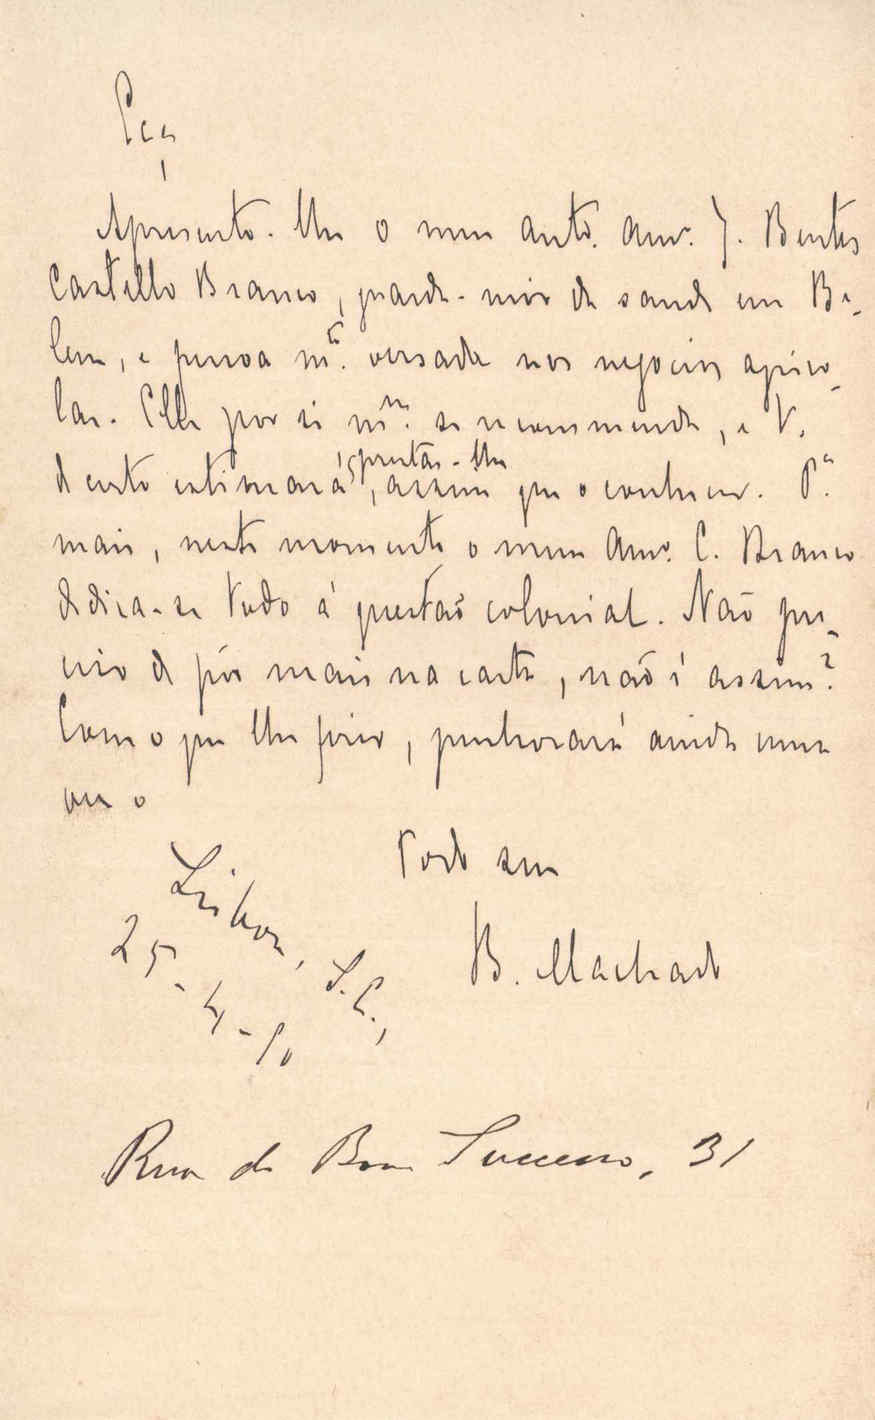 Apresento-lhe o meu anto. Amo. J. Bentes
Castello Branco, guarda-mór da saude em Be-
lem, e pessoa mto. versada nos negocios agrico-
las. Elle por si mmo. se recommenda, e V.
de certo estimará, prestar-lhe
assim que o conhecer. Pa.
mais, neste momento o meu Amo. C. Branco
dedica-se todo á questão colonial. Não pre-
ciso de pôr mais na carta, não é assim?
Com o que lhe fizer, penhorará ainda uma
vez o
Todo seu
B. Machado
Lisboa, S. C.,
25-4-90
Rua do Bom Successo, 31